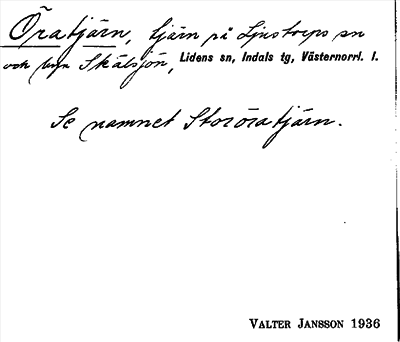 Öratjärn, tjärn på Ljustorps sn
och byn Skälsjön, Lidens sn, Indals tg, Västernorrl. l.
Se namnet Storöratjärn.
VALTER JANSSON 1936